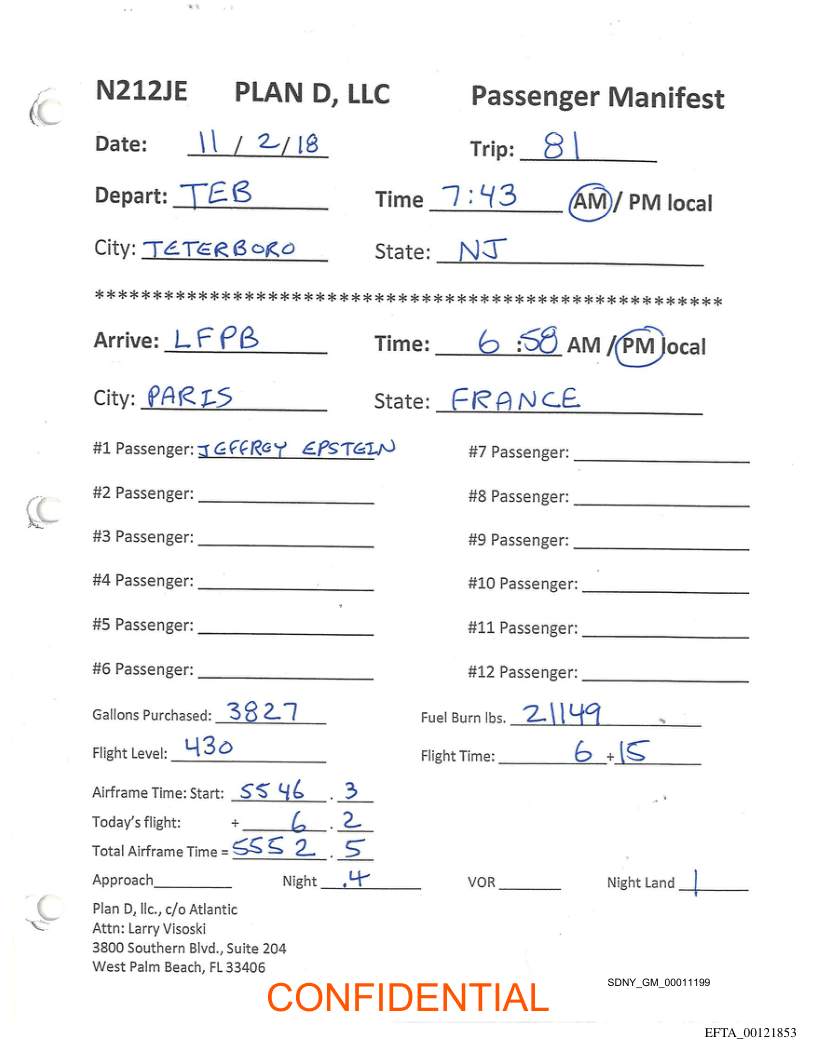 N212JE PLAN D, LLC Passenger Manifest
Date: 11 / 2 / 18 Trip: 81
Depart: TEB Time 7:43 AM / PM local
City: TETERBORO State: NJ
*******************************************************
Arrive: LFPB Time: 6 :58 AM / PM local
City: PARIS State: FRANCE
#1 Passenger: JEFFREY EPSTEIN #7 Passenger:
#2 Passenger: #8 Passenger:
#3 Passenger: #9 Passenger:
#4 Passenger: #10 Passenger:
#5 Passenger: #11 Passenger:
#6 Passenger: #12 Passenger:
Gallons Purchased: 3827 Fuel Burn lbs. 21149
Flight Level: 430 Flight Time: 6 + 15
Airframe Time: Start: 5546 . 3
Today's flight: + 6 . 2
Total Airframe Time = 5552 . 5
Approach Night .4 VOR Night Land 1
Plan D, llc., c/o Atlantic
Attn: Larry Visoski
3800 Southern Blvd., Suite 204
West Palm Beach, FL 33406
SDNY_GM_00011199
CONFIDENTIAL
EFTA_00121853